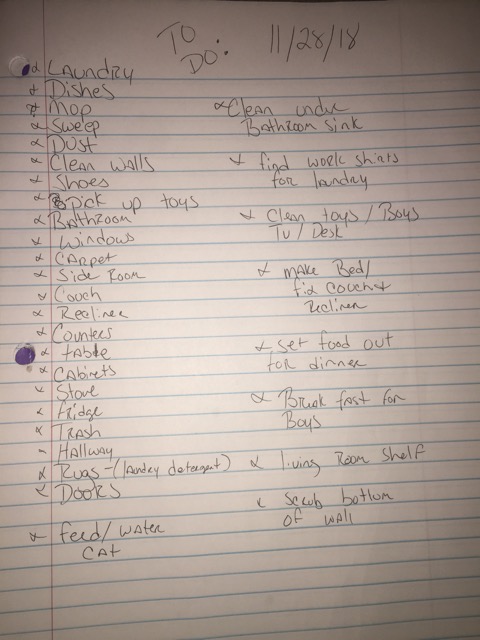 TO DO: 11/28/18
Laundry
Dishes
Mop
Sweep
Dust
Clean walls
Shoes
Pick up toys
Bathroom
Windows
Carpet
Side Room
Couch
Recliner
Counters
table
Cabinets
Stove
Fridge
Trash
Hallway
Rugs - (laundry detergent)
Doors
feed/water
cat
Clean under
Bathroom sink
find work shirts
for laundry
Clean toys/Boys
TV/Desk
make Bed/
fix couch +
Recliner
set food out
for dinner
Breakfast for
Boys
living Room shelf
scrub bottom
of wall